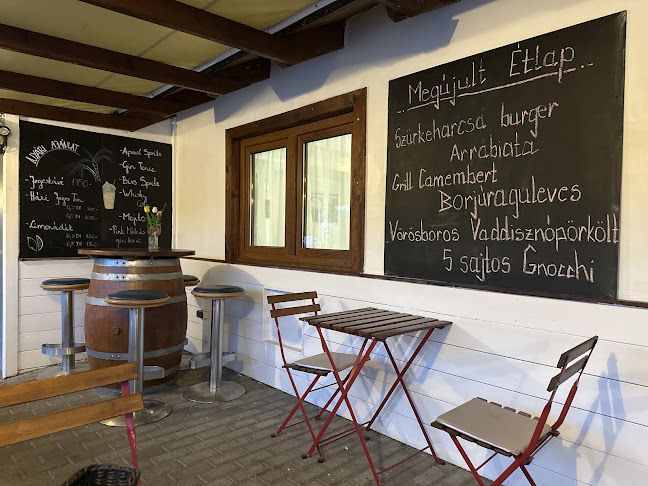 ITAL AJÁNLAT
- Jegestávé 1750.-
- Házi Jeges Tea
- Limonádék
- Aperol Spritz
- Gin Tonic
- Bíús Spritz
- Mojito
- Pink
gin tonic
Megújult Étlap
Szürkeharcsa burger
Arrabiata
Grill Camembert
Borjúraguleves
Vörösboros Vaddisznópörkölt
5 sajtos Gnocchi